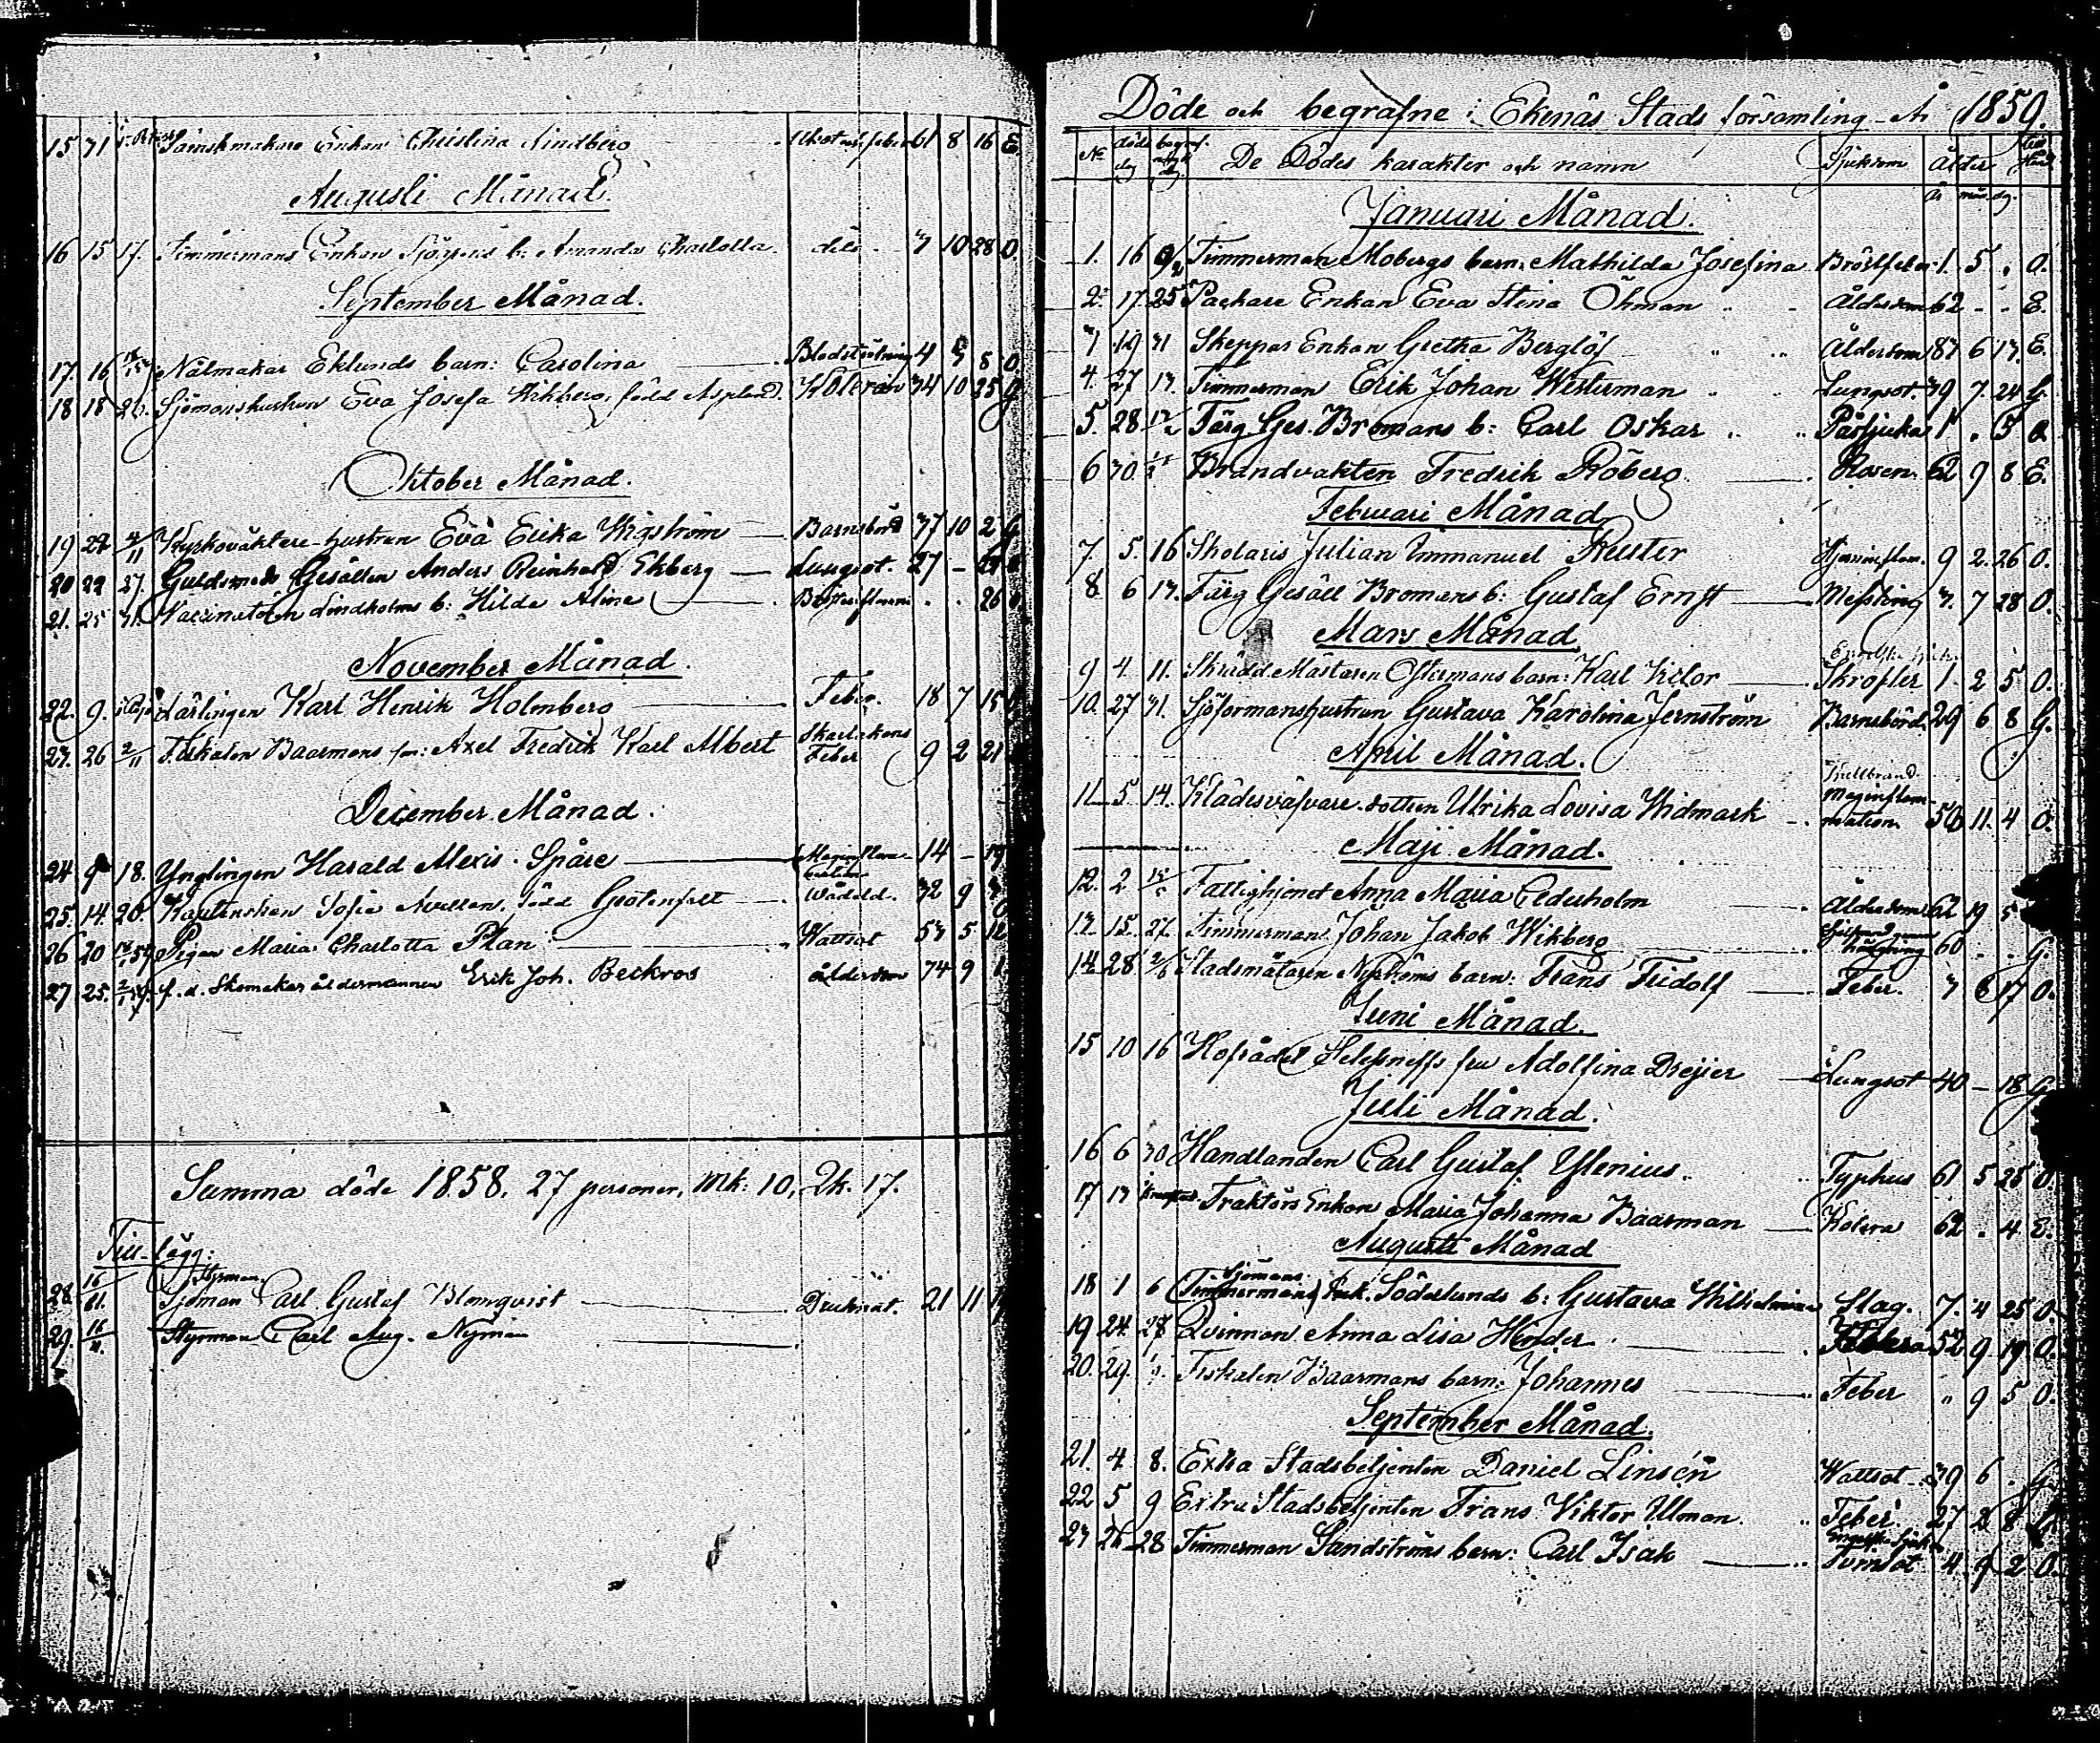 15 31 Sämskmakare Enkan Christina Lindberg 61 8 16 E.
Augusti Månad.
16 15 17. Timmermans Enkan b: Amanda Charlotta dito 3 10 28 O.
September Månad.
17. 16 Nålmakar Eklunds barn: Carolina 4 5 8 O.
18 18 26. Sjömanshustrun Eva Josefa Wikberg, född Asplund. Koleran 34 10 25 G.
Oktober Månad.
19 4/11 Kyrkoväktare-hustrun Eva Erika Wigström Barnsbörd 37 10 2 G
20 22 27. Guldsmeds Gesällen Anders Reinhold Ekberg Lungsot. 27
21. 25 31. Vaccinatören Lindholms b: Hilda Aline 26
November Månad.
22. 9. Lärlingen Karl Henrik Holmberg Feber. 18 7 15
23. 26 2/11 Fiskalen Baarmans son: Axel Fredrik Karl Albert Skarlakans Feber 9 2 21
December Månad.
24 9 18. Ynglingen Harald Alexis Spåre 14 - 19
25. 14. 20 Kaptenskan Sofie född Grotenfelt Wådeld. 32 9
26 20 Pigan Maria Charlotta Plan Wattsot 53 5 12
27 25. f. d. Skomakar åldermannen Erik Joh. Beckros ålderdom 74 9 1
Summa döde 1858. 27 personer, Mk: 10, Qk. 17.
Till-lägg:
Styrman
28. Sjöman Carl Gustaf Blomqvist Drunknat. 21 11
29. Styrman Carl Aug. Nyman
Döde och begrafne i Ekenäs Stads församling År 1859.
No döds dag begraf. dag De Dödes karakter och namn Sjukdom Ålder
År mån. dag.
Januari Månad.
1. 16 Timmerman Mobergs barn: Mathilda Josefina Bröstfeber 1. 5 . O.
2. 17. 25 Packare Enkan Eva Stina Öhman Ålderdom 62 - - E.
3 19 31 Skeppar Enkan Gretha Berglöf Ålderdom 87 6 13. E.
4. 27 13. Timmerman Erik Johan Westerman Lungsot. 39 7. 24 G.
5. 28 Färg Ges. Bromans b: Carl Oskar Påssjuka 1 . 5 O
6 30. Brandvakten Fredrik Röberg Rosen. 62 9 8 E.
Februari Månad
7 5. 16 Skolaris Julian Immanuel Reuter 9 2. 26 O.
8 6 13. Färg Gesäll Bromans b: Gustaf Ernst Messling 3. 7 28 O.
Mars Månad.
9 4. 11. Skrädd.Mästaren Ostermans barn: Karl Victor Skrofler 1. 2 5 O.
10. 27 31. Sjöformanshustrun Gustava Karolina Jernström Barnsbörd. 29 6 8 G.
April Månad.
11 5 14. Klädesväfvare dottern Ulrika Lovisa Widmark Kallbrand. Maginflammation 50 11. 4 O.
Maji Månad.
12. 2 Fattighjonet Anna Maria Cederholm Ålderdom 62 19 5
13. 15. 27. Timmerman Johan Jakob Wikberg 60 . . G.
14. 28 2/6 Stadsmätaren Nyströms barn: Frans Fridolf Feber. 3 6 17 O.
Juni Månad.
15 10 16 Hofrådet fru Adolfina Drejier Lungsot 40 - 18 G
Juli Månad.
16 6 30 Handlanden Carl Gustaf Ylenius Typhus 61 5 25 O
17 13 Traktörs Enkan Maria Johanna Baarman Kolera 62 . 4 E.
Augusti Månad
Sjömans
18 1 6 (Timmermans) Enk. Söderlunds b: Gustava Wilhelmina Slag. 7. 4 25 O.
19 24. 27 Qvinnan Anna Lisa Hinder 52 9. 19 O.
20. 29. Fiskalen Baarmans barn: Johannes Feber " 9 5 O.
September Månad.
21. 4. 8. Extra Stadsbetjenten Daniel Linsén Wattsot 39 6 . G.
22 5 9 Extra Stadsbetjenten Frans Viktor Ulman Feber. 27 2 8
23 26 28 Timmerman Sandströms barn: Carl Isak 4. 9 2 O.